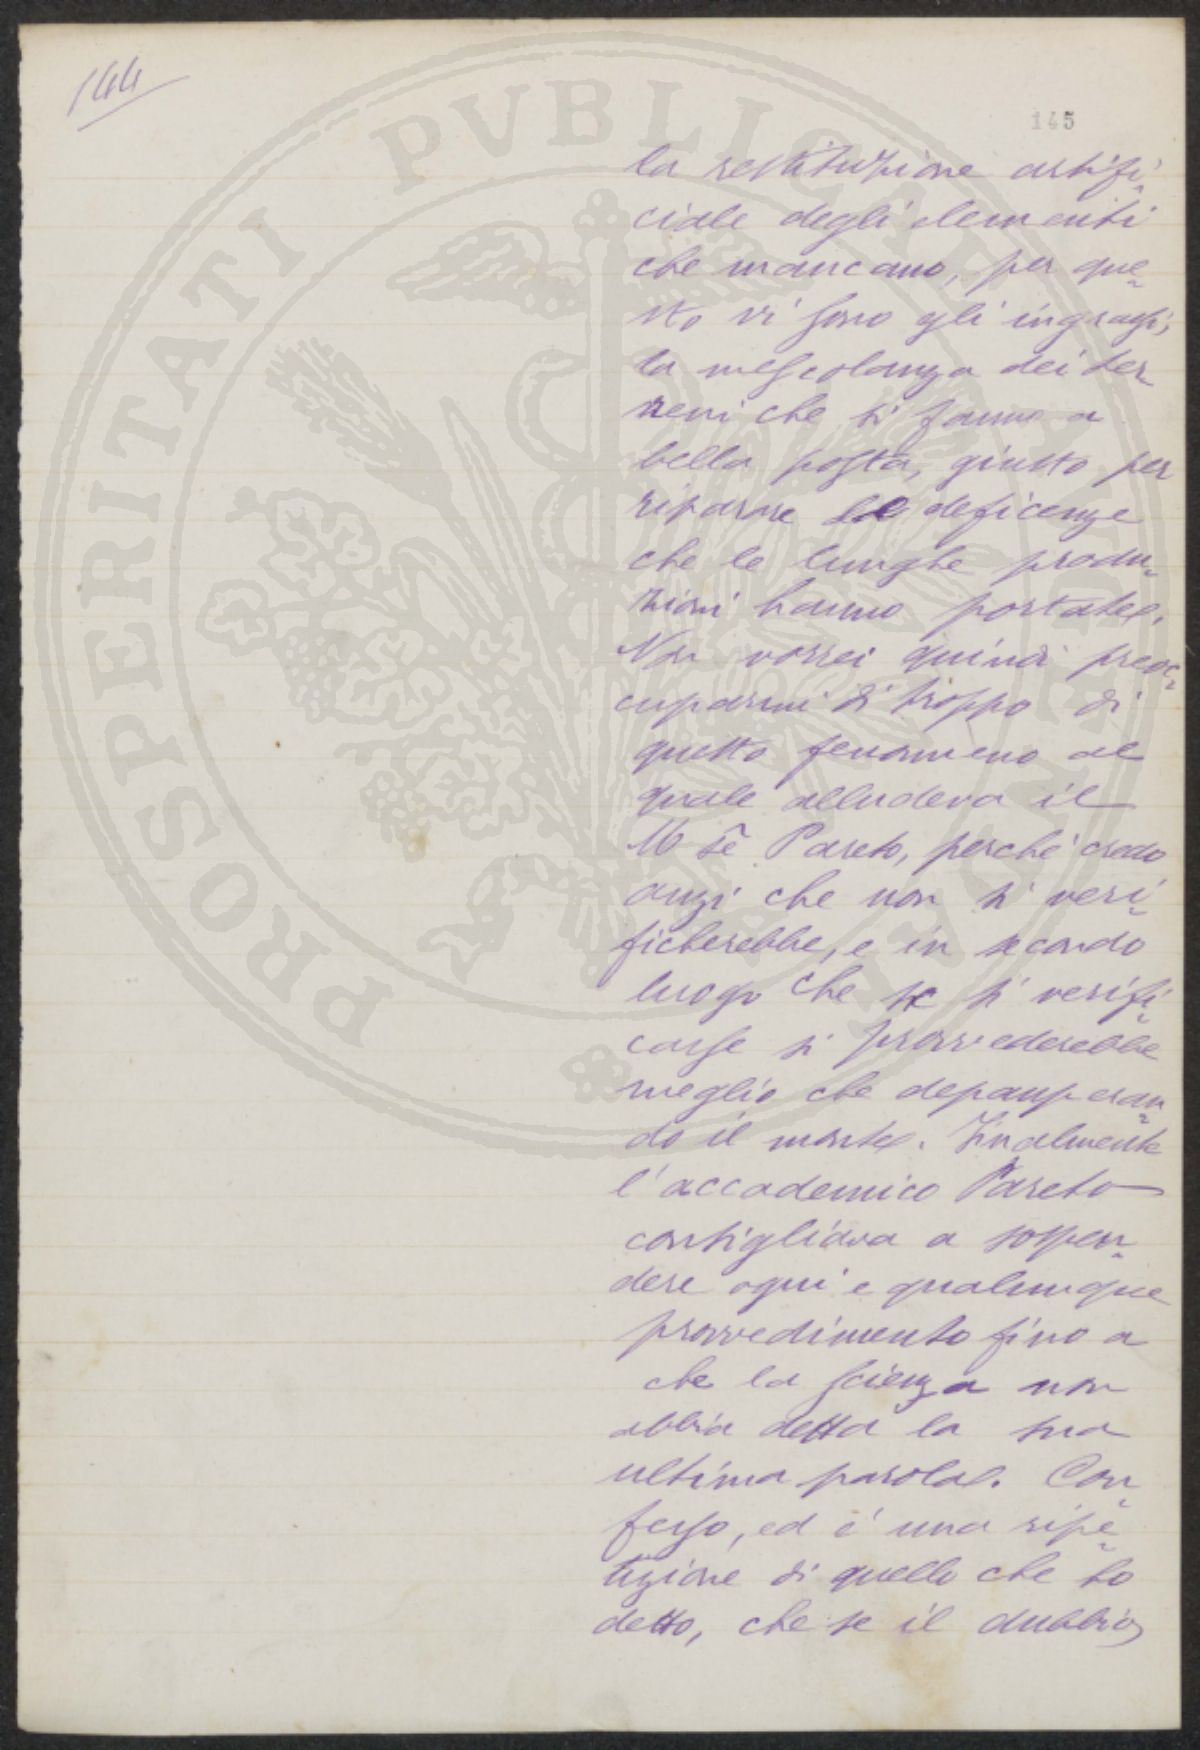 144
145
PROSPERITATI PVBLICAE
la restituzione artifi-
ciale degli elementi
che mancano, per que-
sto vi sono gli ingrassi,
la mescolanza dei ter-
reni che si fanno a
bella posta, giusto per
riparare le deficenze
che le lunghe produ-
zioni hanno portate.
Non vorrei quindi preoc-
cuparmi di troppo di
questo fenomeno al
quale alludeva il
M se Pareto, perchè credo
anzi che non si veri-
ficherebbe, e in secondo
luogo che se si verifi-
casse si provvederebbe
meglio che depauperan-
do il monte. Finalmente
l'accademico Pareto
consigliava a sospen-
dere ogni e qualunque
provvedimento fino a
che la scienza non
abbia detta la sua
ultima parola. Con-
fesso, ed è una ripe-
tizione di quello che ho
detto, che se il dubbio